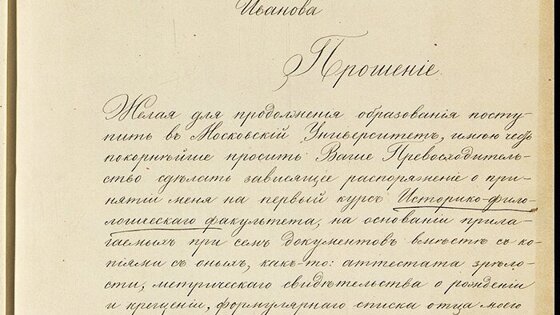 Иванова
Прошеніе.
Желая для продолженія образованія посту-
пить въ Московскій Университетъ, имѣю честь
покорнѣйше просить Ваше Превосходитель-
ство сдѣлать зависящее распоряженіе о при-
нятіи меня на первый курсъ Историко-фило-
логическаго факультета, на основаніи прила-
гаемыхъ при семъ документовъ вмѣстѣ съ ко-
піями съ оныхъ, какъ-то: аттестата зрѣло-
сти, метрическаго свидѣтельства о рожденіи
и крещеніи, формулярнаго списка отца моего